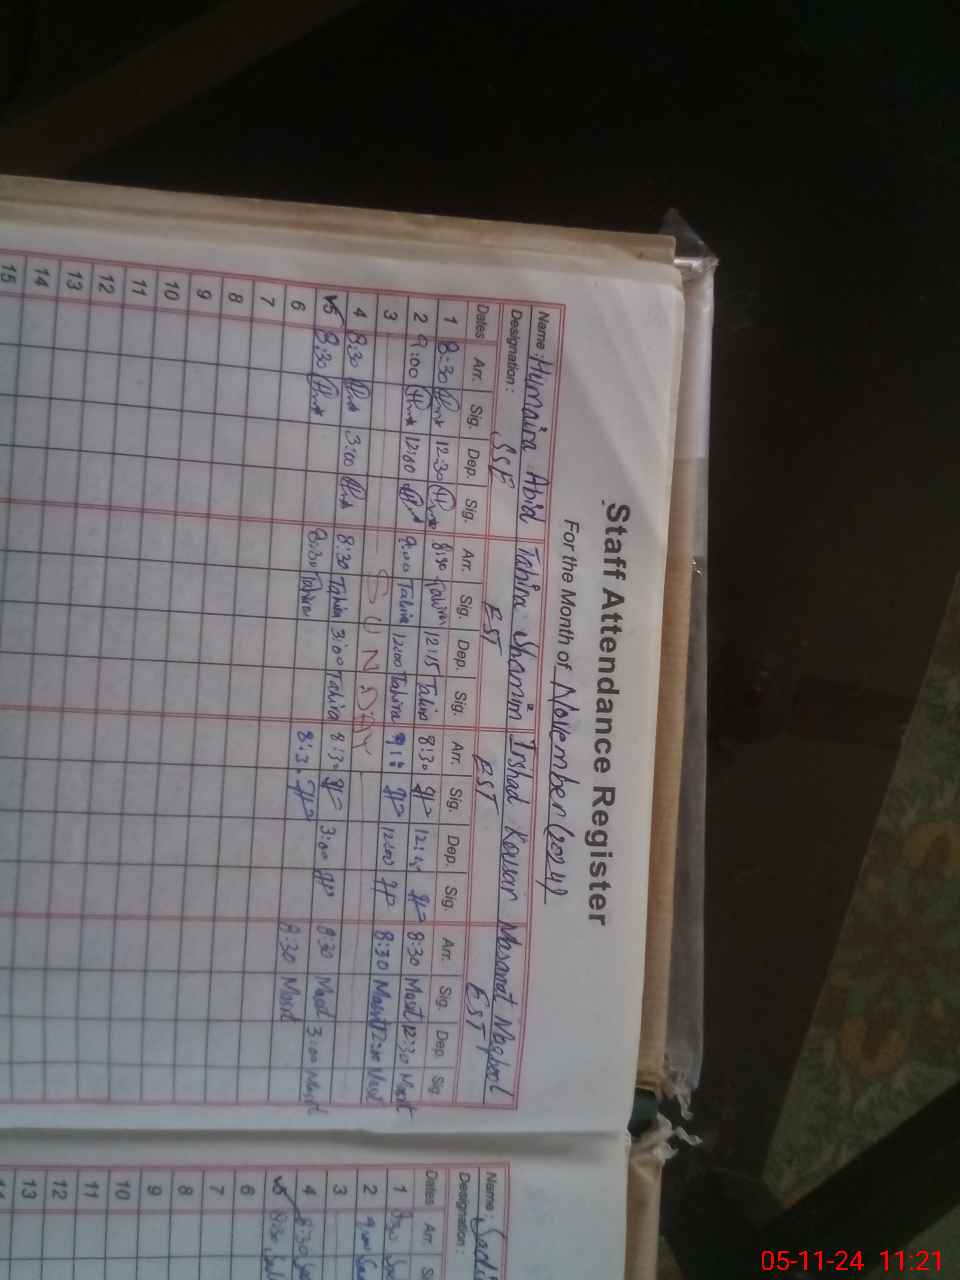 Staff Attendance Register
For the Month of November (2024)
Name: Humaira Abid Tahira Shamim Irshad Kousar Masarat Maqbool
Designation: SSE EST EST EST
Dates Arr. Sig. Dep. Sig. Arr. Sig. Dep. Sig. Arr. Sig. Dep. Sig. Arr. Sig. Dep. Sig
1 8:30 12:30 8:30 Tahira 12:15 Tahira 8:30 8:30 Masrt 12:30 Masrt
2 9:00 12:00 9:00 Tahira 12:00 Tahira 12:00 8:30 Masrt 12:00
3 SUNDAY
4 8:30 3:00 8:30 Tahira 3:00 Tahira 8:30 3:00 8:30 Masrt 3:00 Masrt
5 8:30 8:30 Tahira 8:30 8:30 Masrt
6
7
8
9
10
11
12
13
14
15
Name:
Designation:
Dates Arr.
1 8:30
2 9:00
3
4 8:30
5 8:30
6
7
8
9
10
11
12
13
05-11-24 11:21